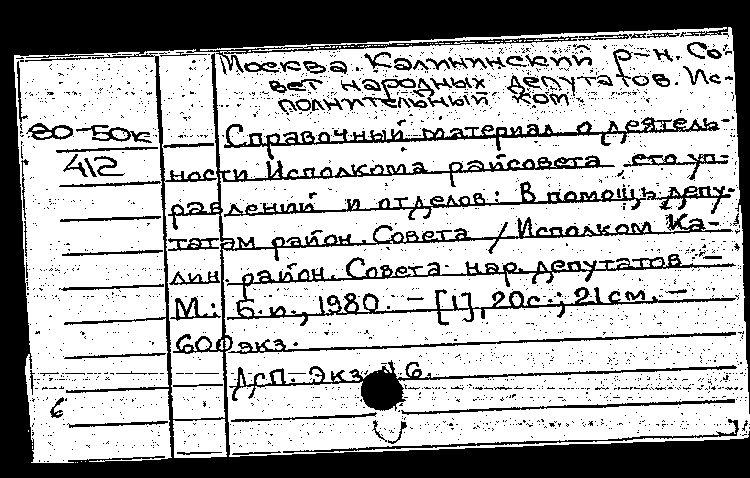 Москва. Калининский р-н. Со-
вет народных депутатов. Ис-
полнительный ком.
80-50к Справочный материал о деятель-
412 ности Исполкома райсовета его уп-
равлений и отделов: В помощь депу-
татам район. Совета / Исполком Ка-
лин. район. Совета нар. депутатов. –
М.: Б.и., 1980. – [1], 20с.; 21см. –
600 экз.
Дсп. Экз. N 6.
6